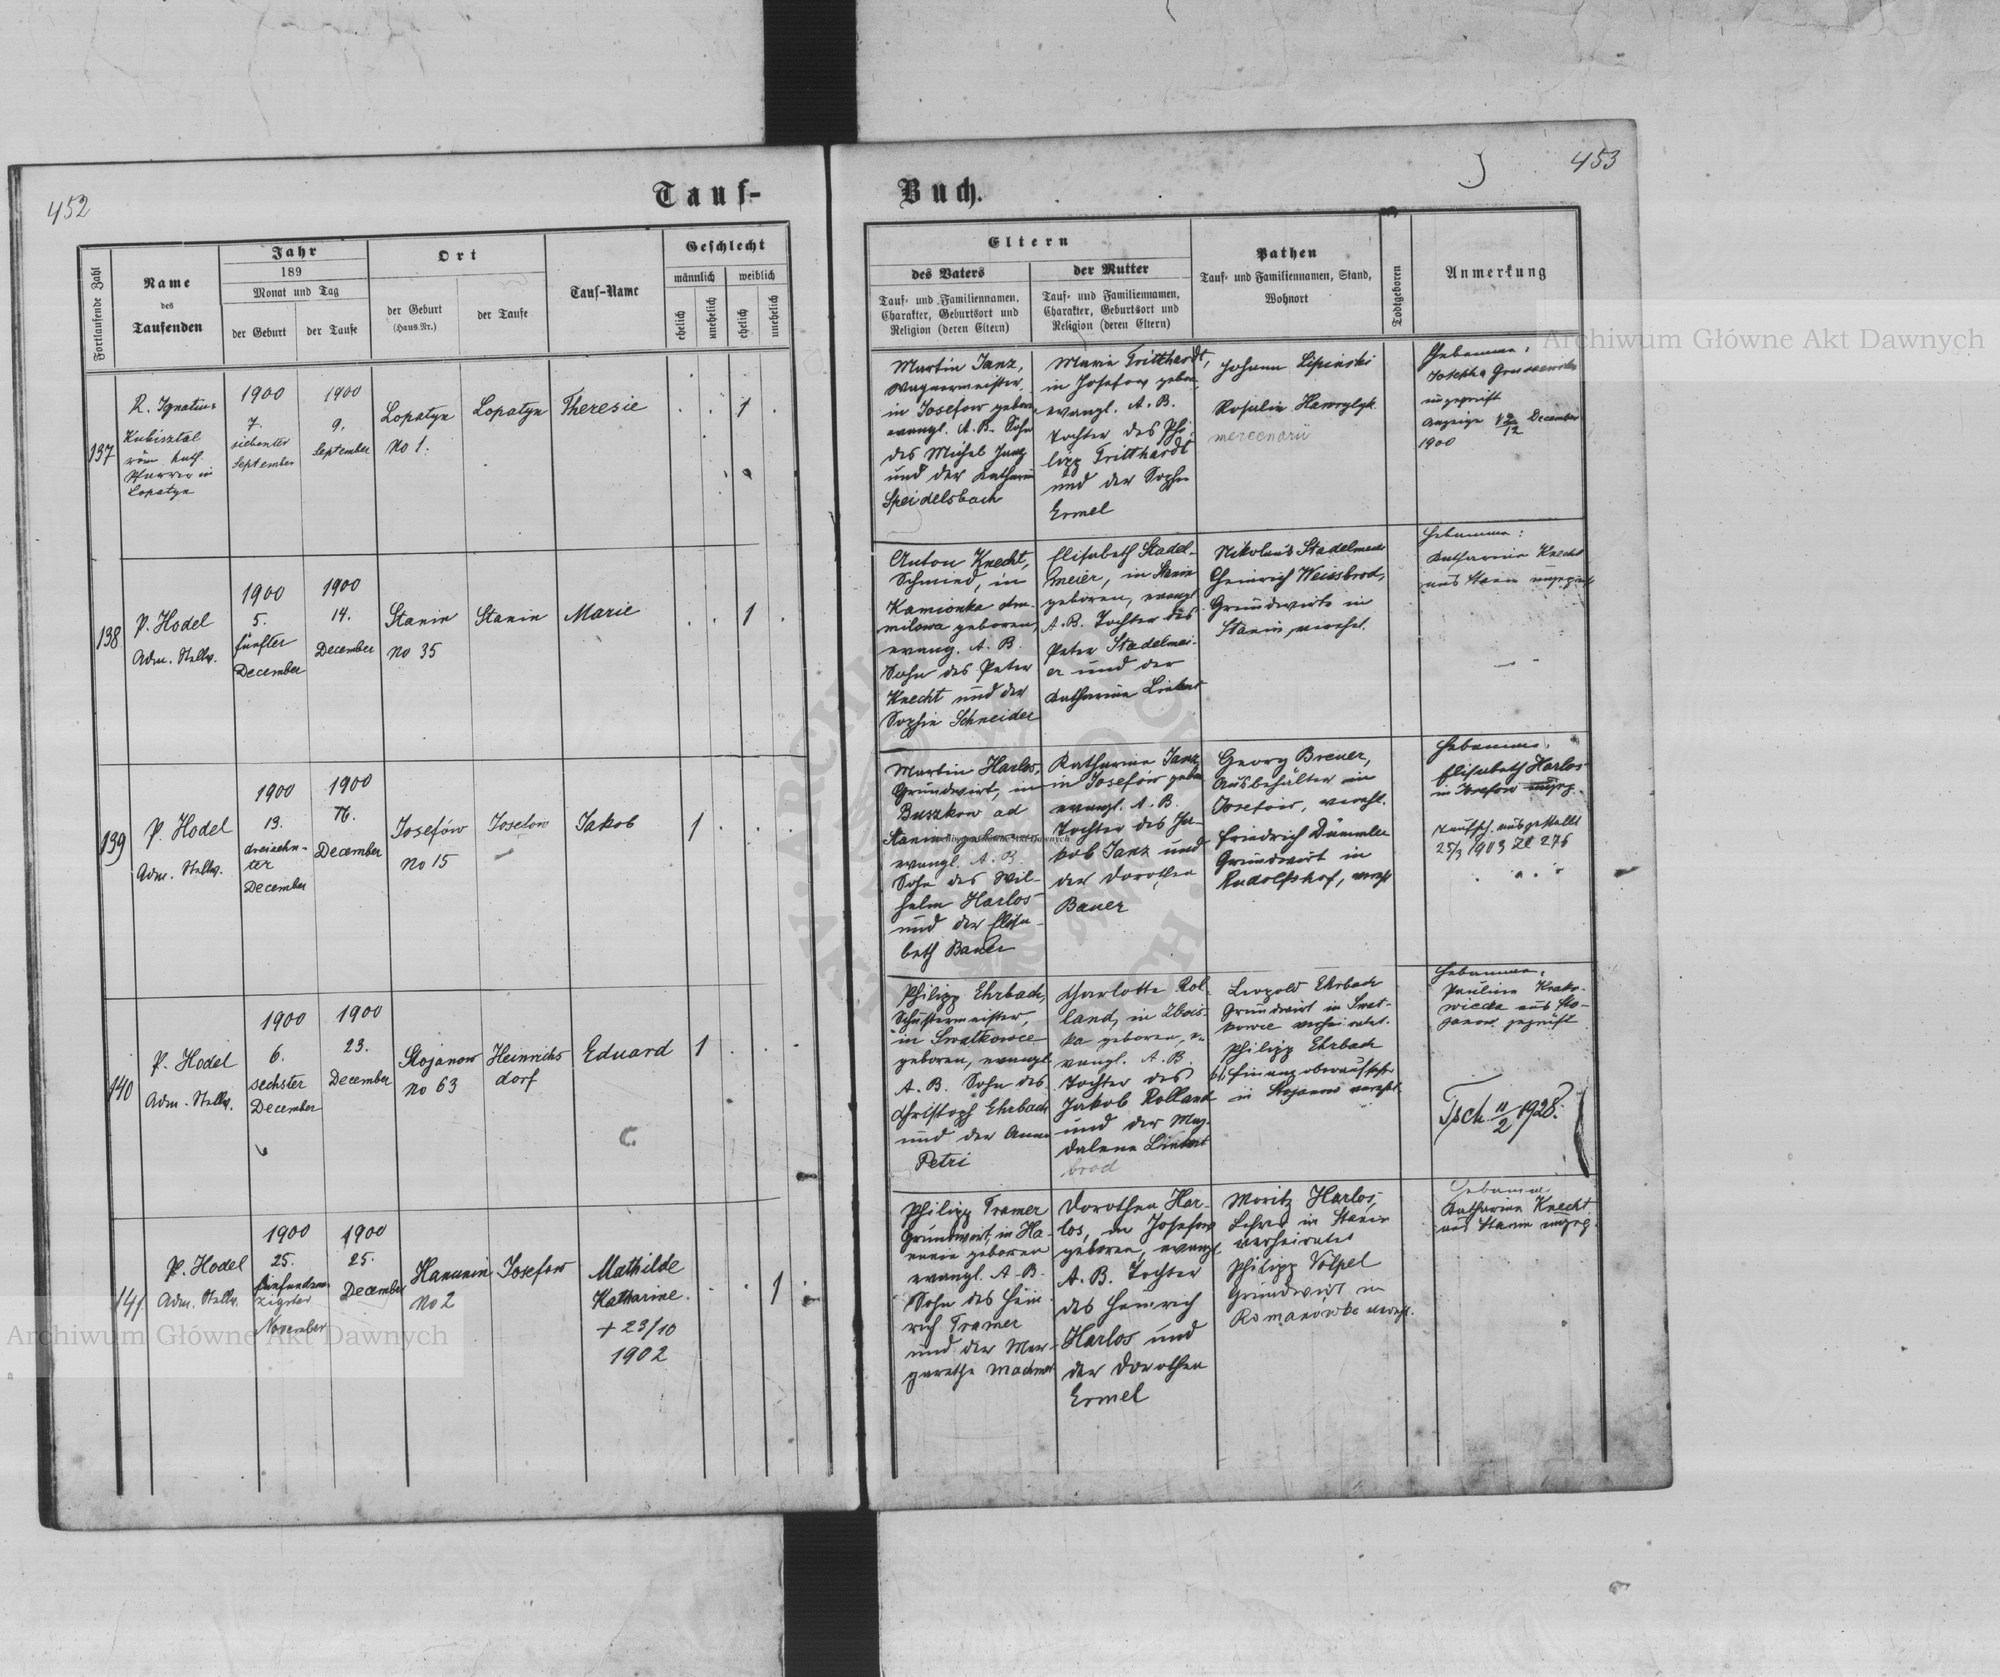 452
Tauf-
Fortlaufende Zahl
Name
des
Taufenden
Jahr
189
Monat und Tag
der Geburt
der Taufe
Ort
der Geburt
(Haus-Nr.)
der Taufe
Tauf-Name
Geschlecht
männlich
weiblich
ehelich
unehelich
ehelich
unehelich
137
R. Ignatius
Kubisztal
röm. kath.
Pfarrer in
Lopatyn
1900
7.
siebenter
September
1900
9.
September
Lopatyn
No 1.
Lopatyn
Theresie
1
138
P. Hodel
Adm. Stellv.
1900
5.
fünfter
December
1900
14.
December
Stanin
No 35
Stanin
Marie
1
139
P. Hodel
Adm. Stellv.
1900
13.
dreizehn-
ter
December
1900
December
Josefów
No 15
Josefow
Jakob
1
140
P. Hodel
Adm. Stellv.
1900
6.
sechster
December
1900
23.
December
Stojanow
No 63
Heinrichs
dorf
Eduard
1
141.
P. Hodel
Adm. Stellv.
1900
25.
fünfundzwan-
zigster
November
1900
25.
December
Hanunin
No 2
Josefow
Mathilde
Katharine.
+ 23/10
1902
1
453
Buch.
Eltern
des Vaters
Tauf- und Familiennamen,
Charakter, Geburtsort und
Religion (deren Eltern)
der Mutter
Tauf- und Familiennamen,
Charakter, Geburtsort und
Religion (deren Eltern)
Pathen
Tauf- und Familiennamen, Stand,
Wohnort
Todtgeboren
Anmerkung
Martin Janz,
Wagnermeister,
in Josefow geboren
evangl. A. B. Sohn
des Michel Janz
und der Katharina
Speidelsbach
Marie Tritthardt,
in Josefow geboren
evangl. A. B.
Tochter des Phi-
lipp Tritthardt
und der Sophie
Ermel
Johann Lipinski
Rosalie Hawrylyk
mercenarii
Hebamme:
Josepha
ungeprüft
Anzeige December
1900
Anton Knecht,
Schmied, in
Kamionka stru-
milowa geboren,
evang. A. B.
Sohn des Peter
Knecht und der
Sophie Schneider
Elisabeth Stadel-
meier, in Stanin
geboren, evangl
A. B. Tochter des
Peter Stadelmei-
er und der
Katharina
Nikolaus Stadelmeier
Heinrich Weissbrod,
Grundwirte in
Stanin, verehel.
Hebamme:
Katharina Knecht
aus Stanin ungeprüft
Martin Harlos,
Grundwirt, in
Buszkow ad
Stanin geboren
evangl. A. B.
Sohn des Wil-
helm Harlos
und der Elisa-
beth Bauer
Katharina Janz
in Josefow geboren
evangl. A. B.
Tochter des Ja-
kob Janz und
der Dorothea
Bauer
Georg Breuer,
Ausbehälter in
Josefow, verehl.
Friedrich
Grundwirt in
Rudolfshof, verehl
Hebamme.
Elisabeth Harlos
in Josefow ungepr.
Taufsch. ausgestellt
25/3 1903 Zl 276
Philipp Ehrbach,
Schustermeister,
in Swatkowce
geboren, evangl.
A. B. Sohn des
Christoph Ehrbach
und der Anna
Petri
Charlotte Rol
land, in Zbois-
ka geboren, e-
vangl. A. B.
Tochter des
Jakob Rolland
und der Mag-
dalena
brod
Leopold Ehrbach
Grundwirt in Swat-
kowce verheiratet.
Philipp Ehrbach
k.k. Finanzoberaufseher
in Stojanow verehl.
Hebamme.
Pauline Krako-
wiecka aus Sto-
janow geprüft
Tsch. 11/2 1928.
Philipp Tramer
Grundwirt, in Ha-
nunin geboren
evangl. A. B.
Sohn des Hein-
rich Tramer
und der Mar-
garethe
Dorothea Har-
los, in Josefow
geboren, evangl.
A. B. Tochter
des Heinrich
Harlos und
der Dorothea
Ermel
Moritz Harlos,
Lehrer in Stanin
verheiratet
Philipp Völpel
Grundwirt in
Romanowka verehl.
Hebamme
Katharina Knecht
aus Stanin ungepr.
Archiwum Główne Akt Dawnych
Archiwum Główne Akt Dawnych